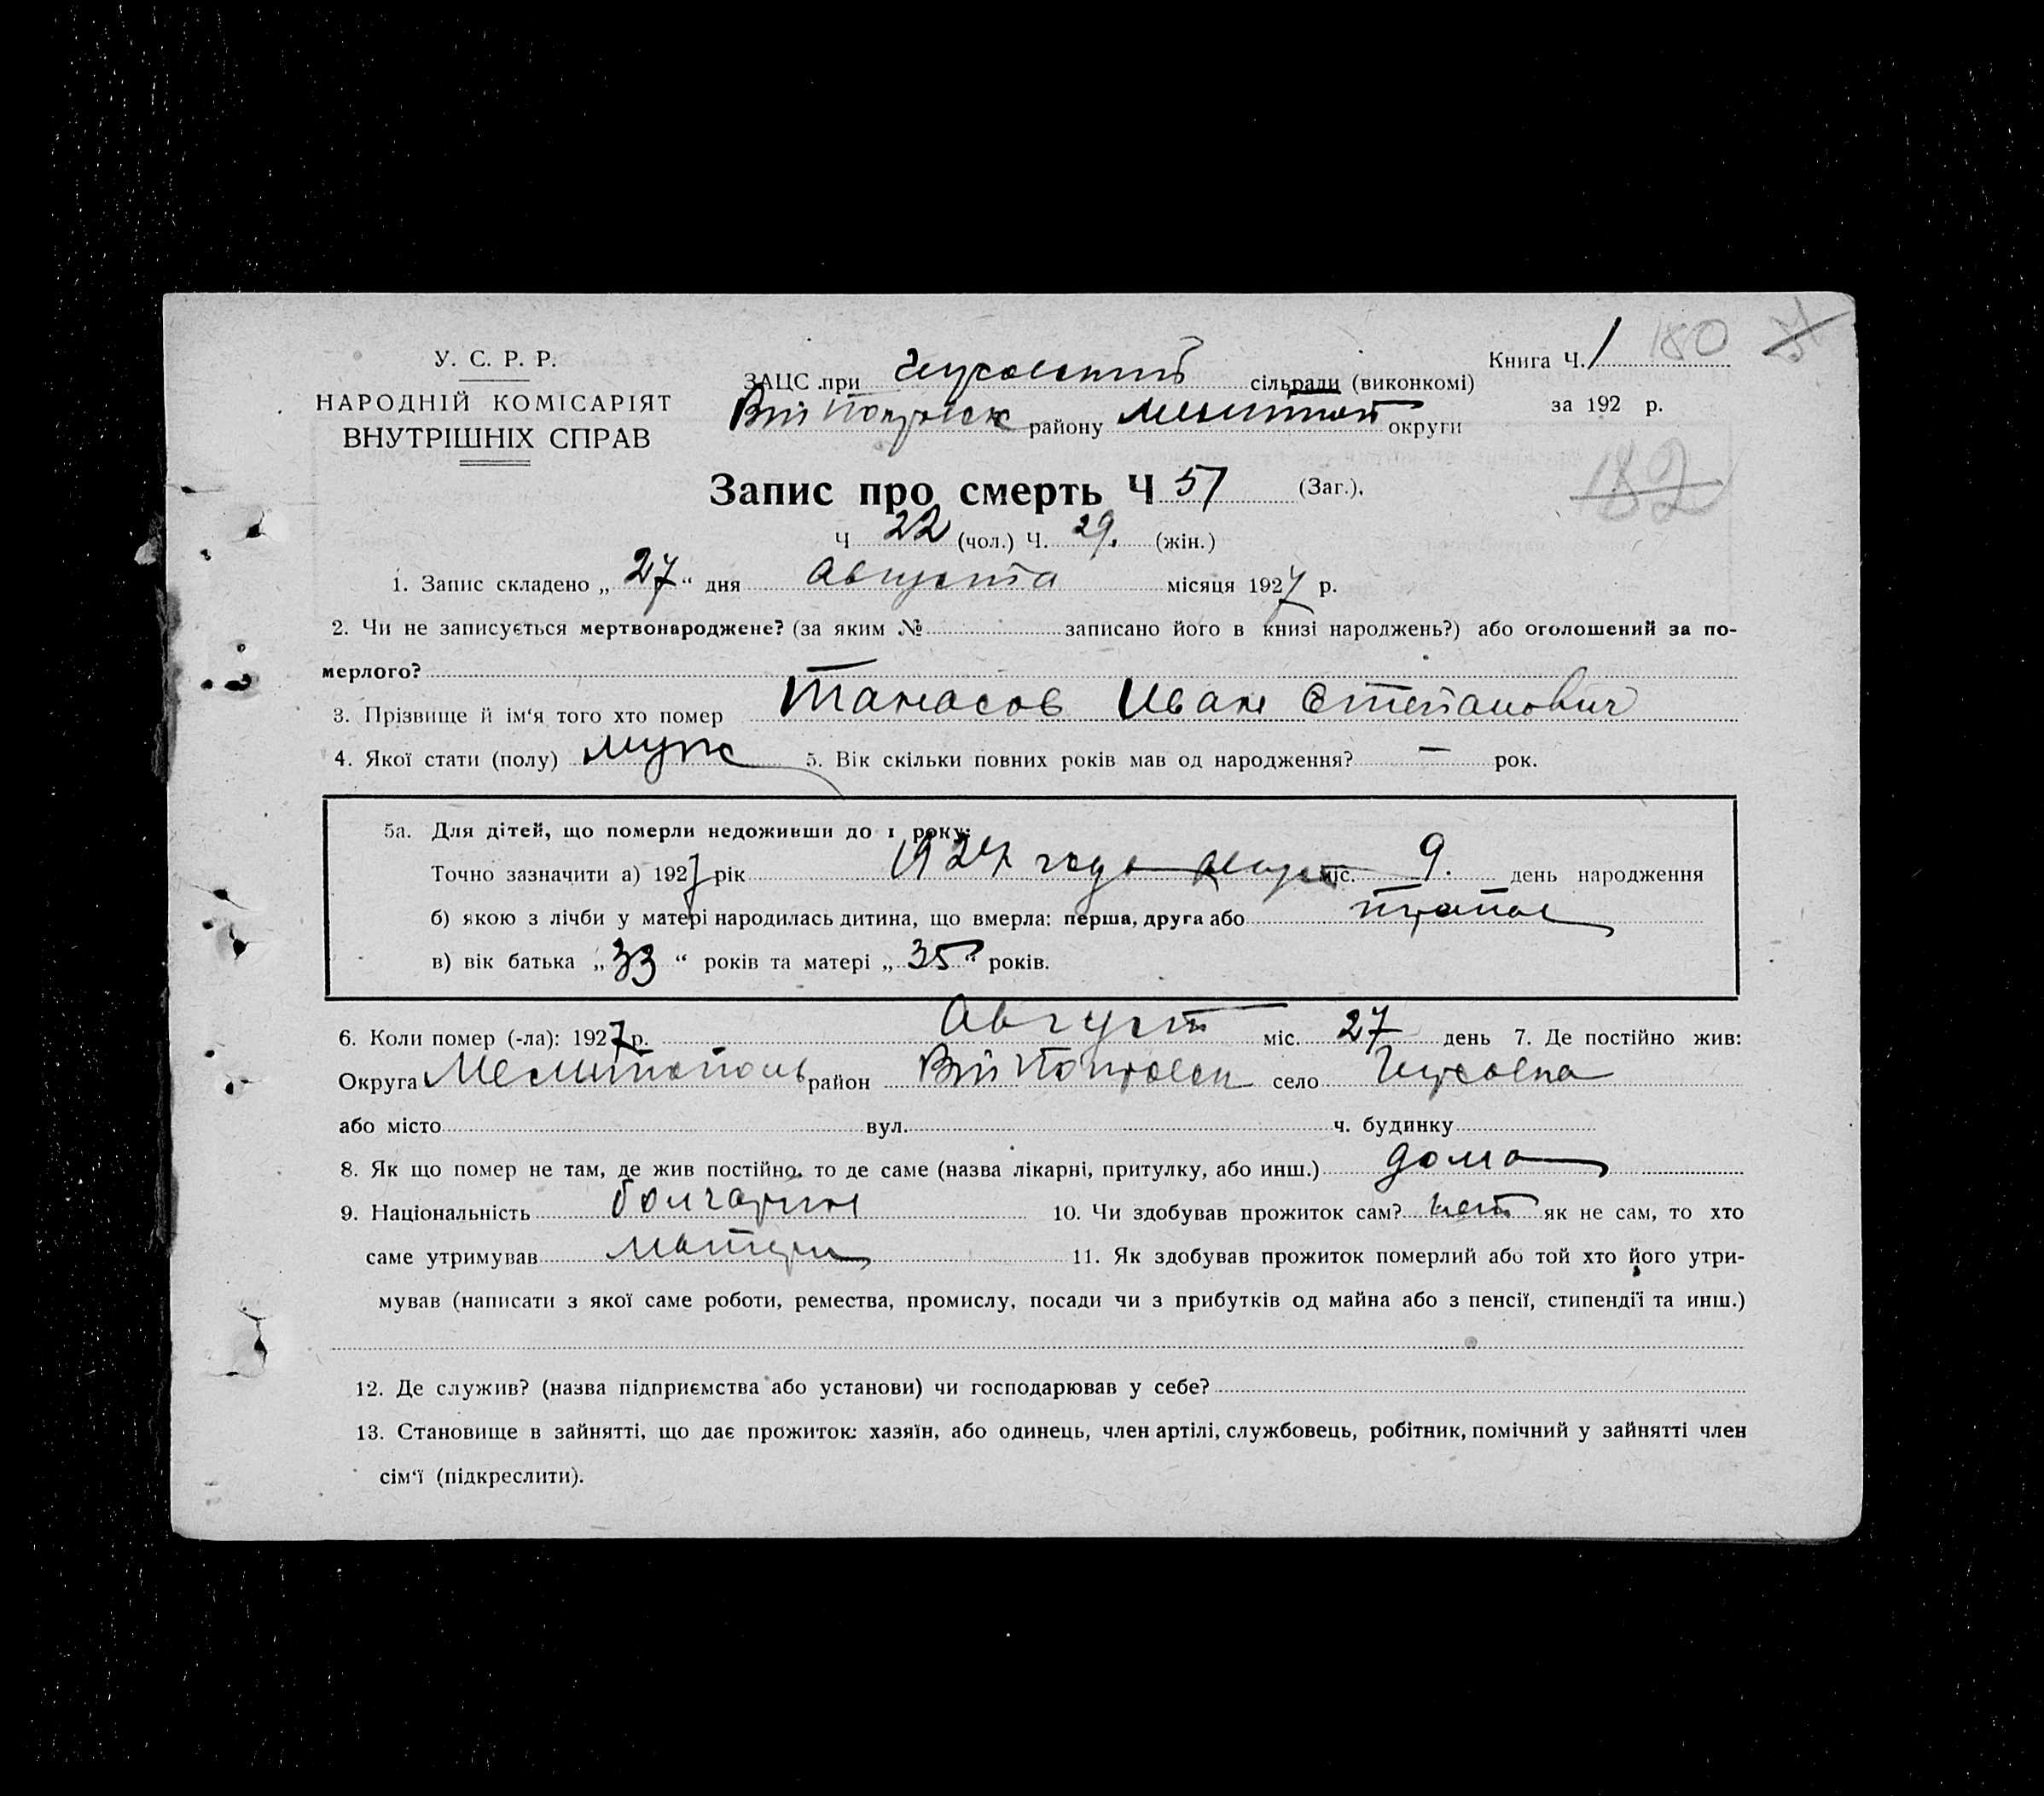 У. С. Р. Р.
НАРОДНІЙ КОМІСАРІЯТ
ВНУТРІШНІХ СПРАВ
Книга Ч. 1 180
за 192 р.
182
ЗАЦС при сільради (виконкомі)
району округи
Запис про смерть Ч 51 (Заг.).
Ч 22 (чол.) Ч. 29. (жін.)
1. Запис складено „ 27 “ дня Августа місяця 1927 р.
2. Чи не записується мертвонароджене? (за яким № записано його в книзі народжень?) або оголошений за по-
мерлого?
3. Прізвище й ім‘я того хто помер Танасов Иван Степанович
4. Якої стати (полу) муж 5. Вік скільки повних років мав од народження? — рок.
5а. Для дітей, що померли недоживши до 1 року:
Точно зазначити а) 1927 рік года міс. 9. день народження
б) якою з лічби у матері народилась дитина, що вмерла: перша, друга або
в) вік батька „ 33 “ років та матері „ 35 “ років.
6. Коли помер (-ла): 1927 р. Август міс. 27 день 7. Де постійно жив:
Округа Мелитополь район село
або місто вул. ч. будинку
8. Як що помер не там, де жив постійно, то де саме (назва лікарні, притулку, або инш.) дома
9. Національність болгарин 10. Чи здобував прожиток сам? нет як не сам, то хто
саме утримував 11. Як здобував прожиток померлий або той хто його утри-
мував (написати з якої саме роботи, ремества, промислу, посади чи з прибутків од майна або з пенсії, стипендії та инш.)
12. Де служив? (назва підприємства або установи) чи господарював у себе?
13. Становище в зайнятті, що дає прожиток: хазяїн, або одинець, член артілі, службовець, робітник, помічний у зайнятті член
сім‘ї (підкреслити).